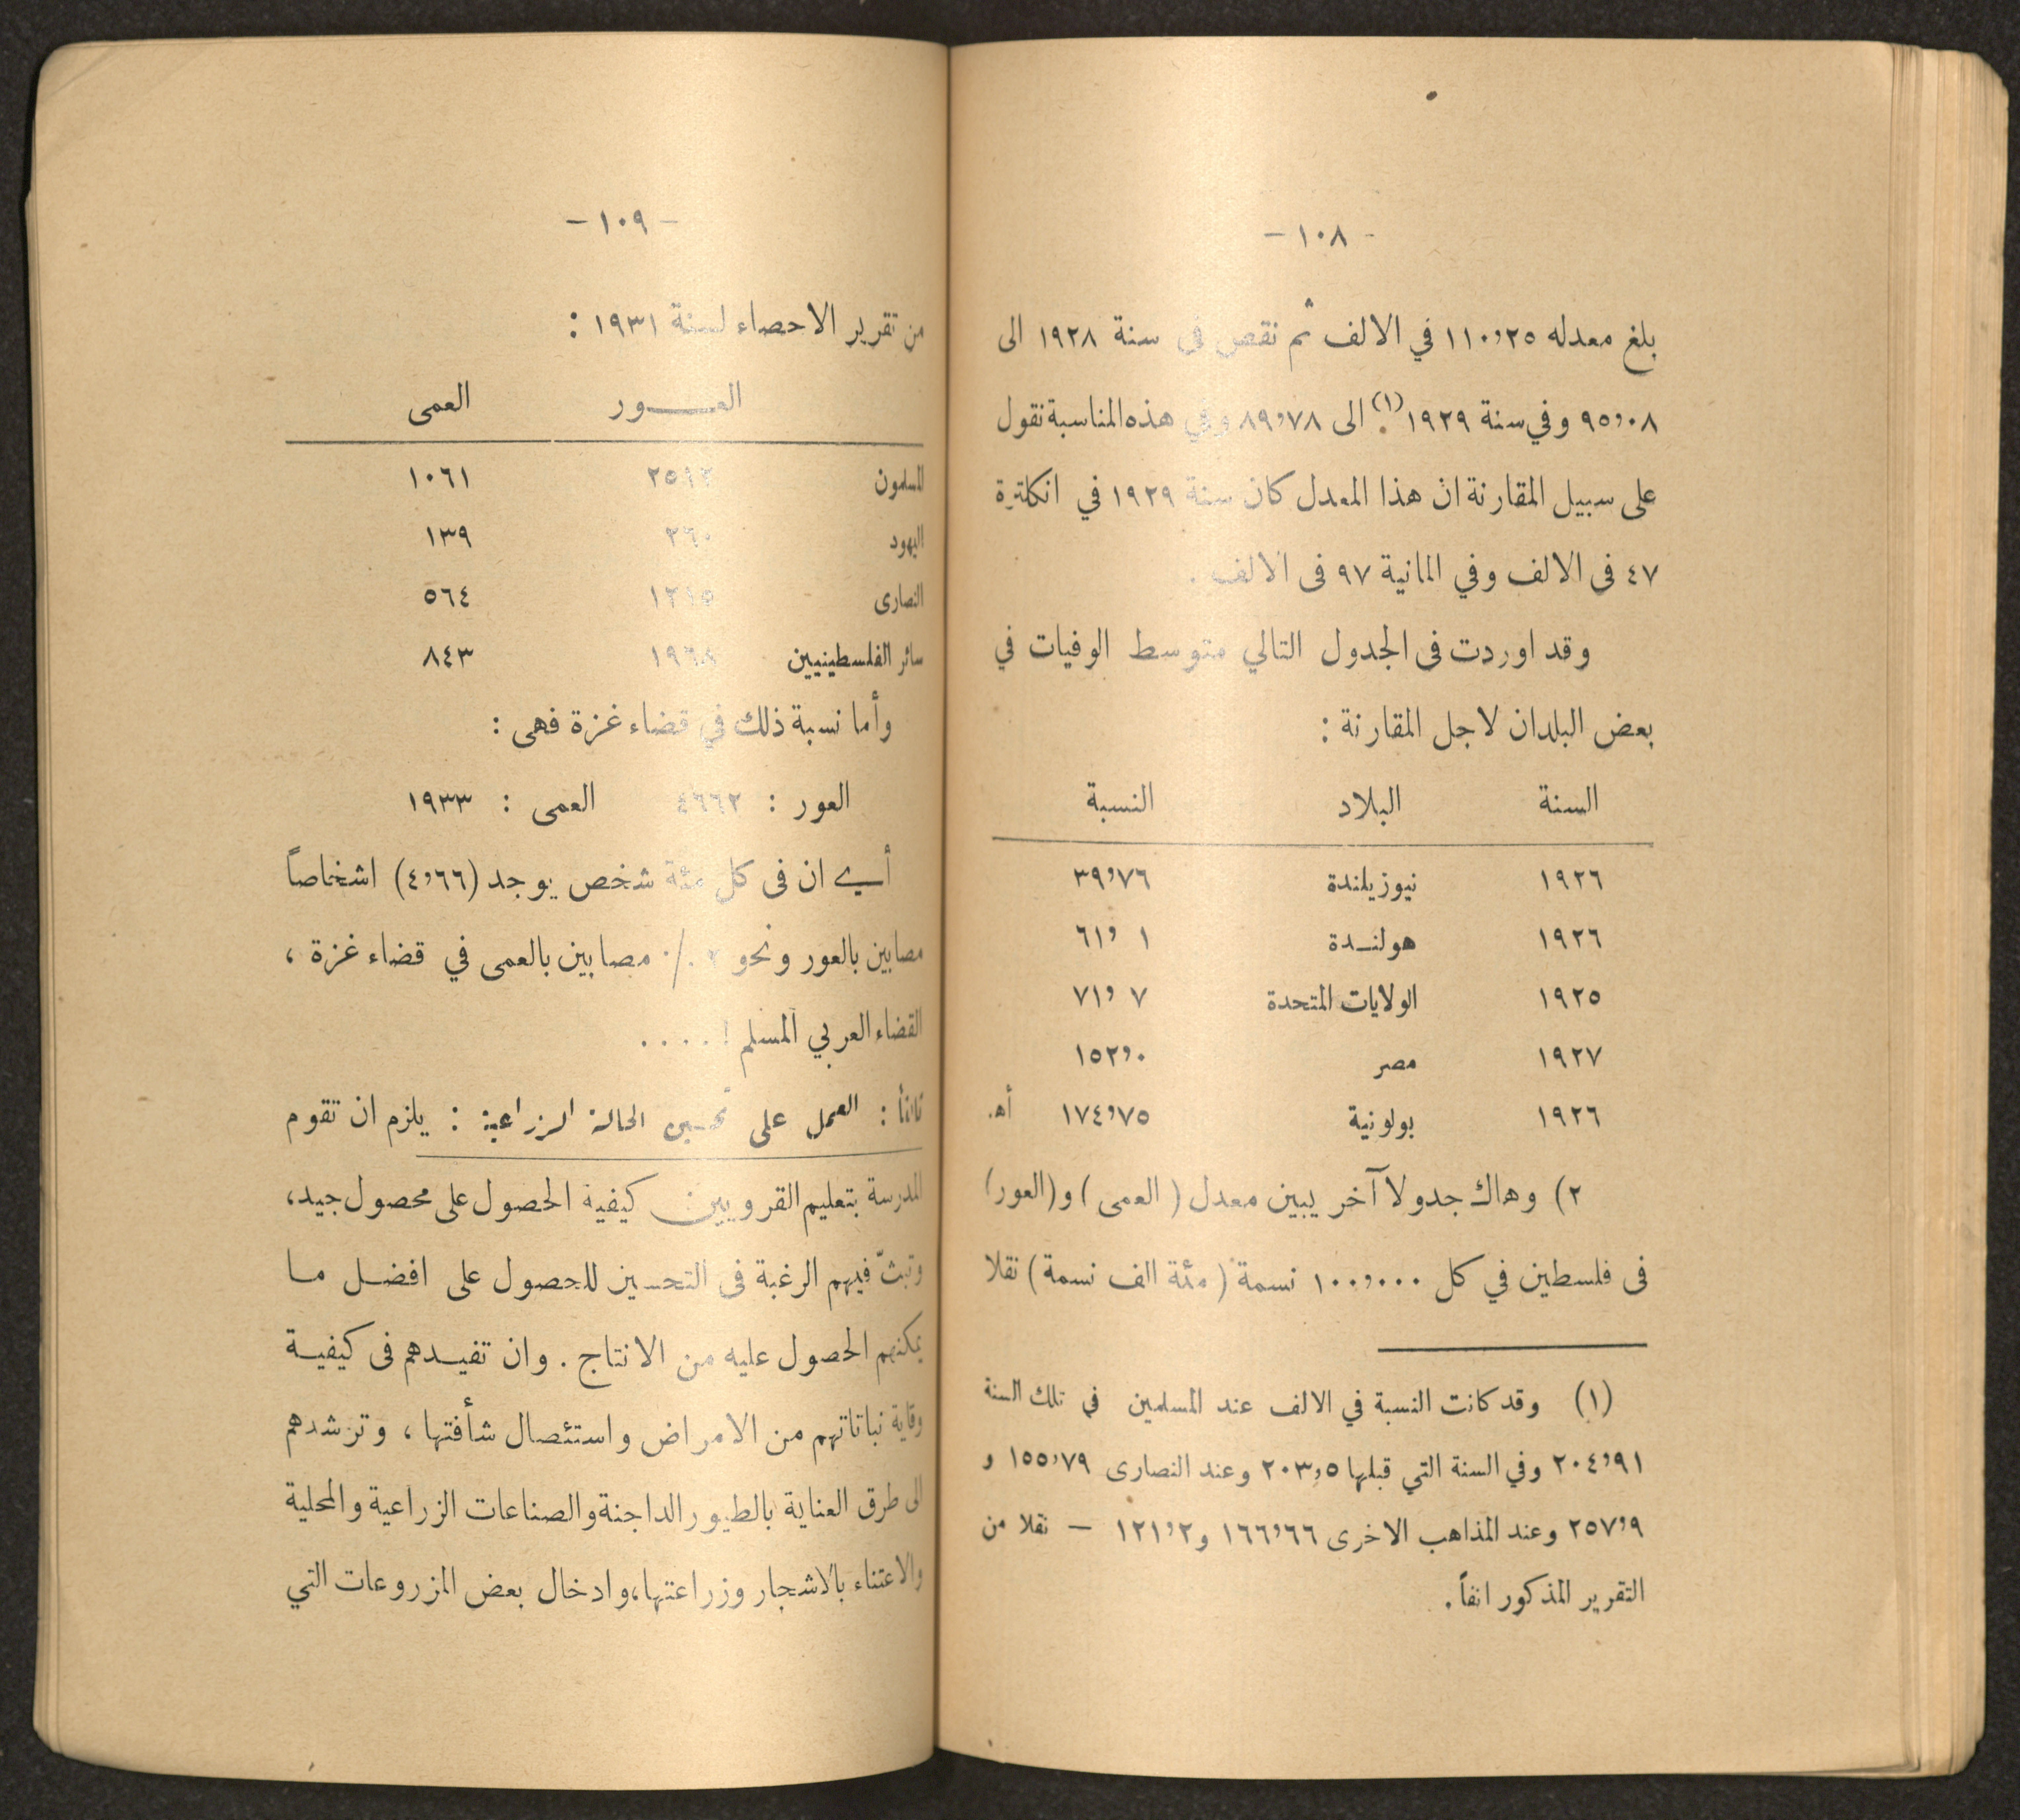 - ١٠٨ -
بلغ معدله ١١٠,٢٥ في الالف ثم نقص فى سنة ١٩٢٨ الى
٩٥,٠٨ وفي سنة ١٩٢٩ (١) الى ٨٩,٧٨ وفي هذه المناسبة نقول
على سبيل المقارنة ان هذا المعدل كان سنة ١٩٢٩ في انكلترة
٤٧ فى الالف وفي المانية ٩٧ فى الالف .
وقد اوردت فى الجدول التالي متوسط الوفيات في
بعض البلدان لاجل المقارنة :
السنة البلاد النسبة
١٩٢٦ نيوزيلندة ٣٩,٧٦
١٩٢٦ هولندة ٦١,١
١٩٢٥ الولايات المتحدة ٧١,٧
١٩٢٧ مصر ١٥٢,٠
١٩٢٦ بولونية ١٧٤,٧٥ أهـ.
٢) وهاك جدولا آخر يبين معدل ( العمى ) و (العور)
فى فلسطين في كل ١٠٠,٠٠٠ نسمة ( مئة الف نسمة ) نقلا
(١) وقد كانت النسبة في الالف عند المسلمين في تلك السنة
٢٠٤,٩١ وفي السنة التي قبلها ٢٠٣,٥ وعند النصارى ١٥٥,٧٩ و
٢٥٧,٩ وعند المذاهب الاخرى ١٦٦,٦٦ و ١٢١,٢ — نقلا من
التقرير المذكور انفاً .
- ١٠٩ -
من تقرير الاحصاء لسنة ١٩٣١ :
العـــور العمى
المسلمون ١٠٦١
اليهود ٢٦٠ ١٣٩
النصارى ٥٦٤
سائر الفلسطينيين ١٩٦٨ ٨٤٣
وأما نسبة ذلك في قضاء غزة فهى :
العور : ٤٦٦٢ العمى : ١٩٣٣
أي ان فى كل مئة شخص يوجد (٤,٦٦) اشخاصاً
مصابين بالعور ونحو ٢ ٠/٠ مصابين بالعمى في قضاء غزة ،
القضاء العربي المسلم ! ....
ثانيا : العمل على تحسين الحالة الزراعية : يلزم ان تقوم
المدرسة بتعليم القرويين كيفية الحصول على محصول جيد،
وتبثّ فيهم الرغبة فى التحسين للحصول على افضل ما
يمكنهم الحصول عليه من الانتاج . وان تفيدهم فى كيفية
وقاية نباتاتهم من الامراض واستئصال شأفتها ، وترشدهم
الى طرق العناية بالطيور الداجنة والصناعات الزراعية والمحلية
والاعتناء بالاشجار وزراعتها، وادخال بعض المزروعات التي